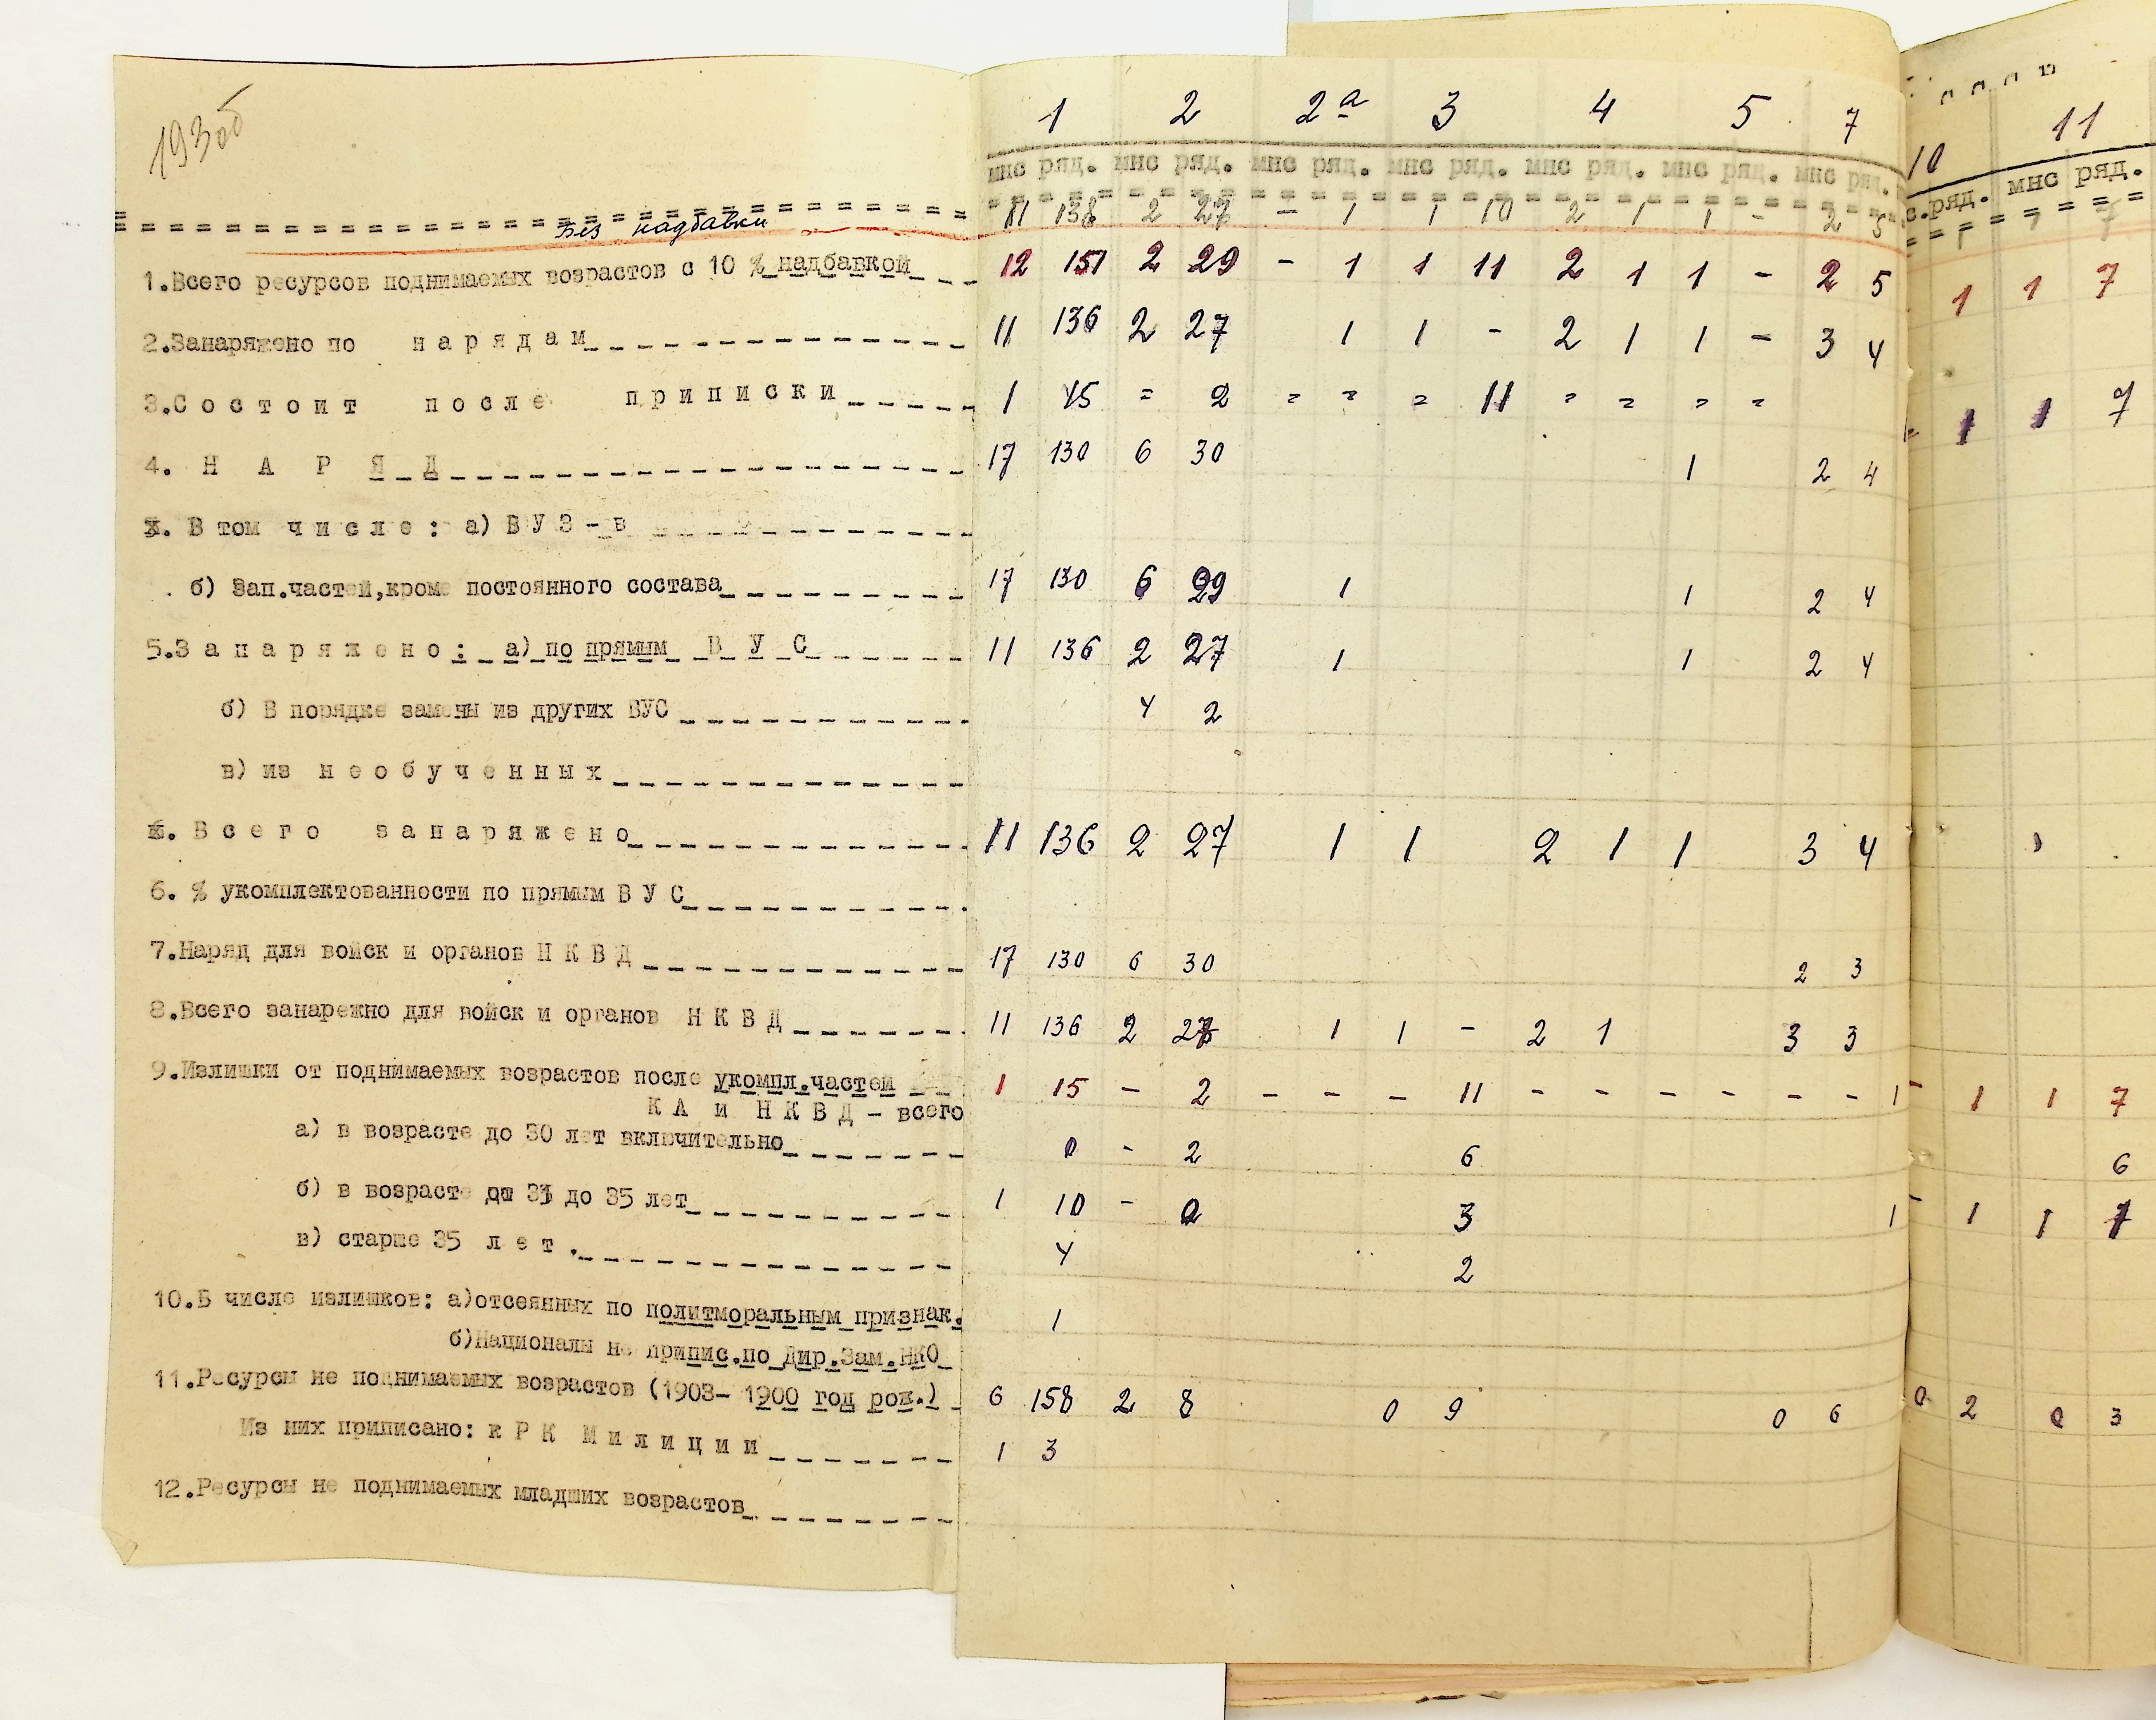 193об
1 2 2а 3 4 5 7 10 11
мнс ряд. мнс ряд. мнс ряд. мнс ряд. мнс ряд. мнс ряд. мнс ряд. с. ряд. мнс ряд.
Без надбавки 11 138 2 27 - 1 1 10 2 1 1 - 2 5 1 1 7
1.Всего ресурсов поднимаемых возрастов с 10 % надбавкой 12 151 2 29 - 1 1 11 2 1 1 - 2 5 1 1 7
2.Занаряжено по нарядам 11 136 2 27 1 1 - 2 1 1 - 3 4
3.Состоит после приписки 1 15 = 2 = = = 11 = = = = 1 1 7
4. НАРЯД 17 130 6 30 1 2 4
В том числе: а) ВУЗ-в
б) Зап.частей,кроме постоянного состава 17 130 6 29 1 1 2 4
5.Занаряжено: а) по прямым ВУС 11 136 2 27 1 1 2 4
б) В порядке замены из других ВУС 4 2
в) из необученных
Всего занаряжено 11 136 2 27 1 1 2 1 1 3 4
6. % укомплектованности по прямым ВУС
7.Наряд для войск и органов НКВД 17 130 6 30 2 3
8.Всего занарежно для войск и органов НКВД 11 136 2 27 1 1 - 2 1 3 3
9.Излишки от поднимаемых возрастов после укомпл.частей 1 15 - 2 - - - 11 - - - - - - 1 - 1 1 7
КА и НКВД - всего
а) в возрасте до 30 лет включительно 0 - 2 6 6
б) в возрасте от 31 до 35 лет 1 10 - 0 3 1 - 1 1 1
в) старше 35 лет. 4 2
10.В числе излишков: а)отсеянных по политморальным признак. 1
б)Националы не припис.по Дир.Зам.НКО
11.Ресурсы не поднимаемых возрастов (1903-1900 год рож.) 6 158 2 8 0 9 0 6 0 2 0 3
Из них приписано: к РК Милиции 1 3
12.Ресурсы не поднимаемых младших возрастов